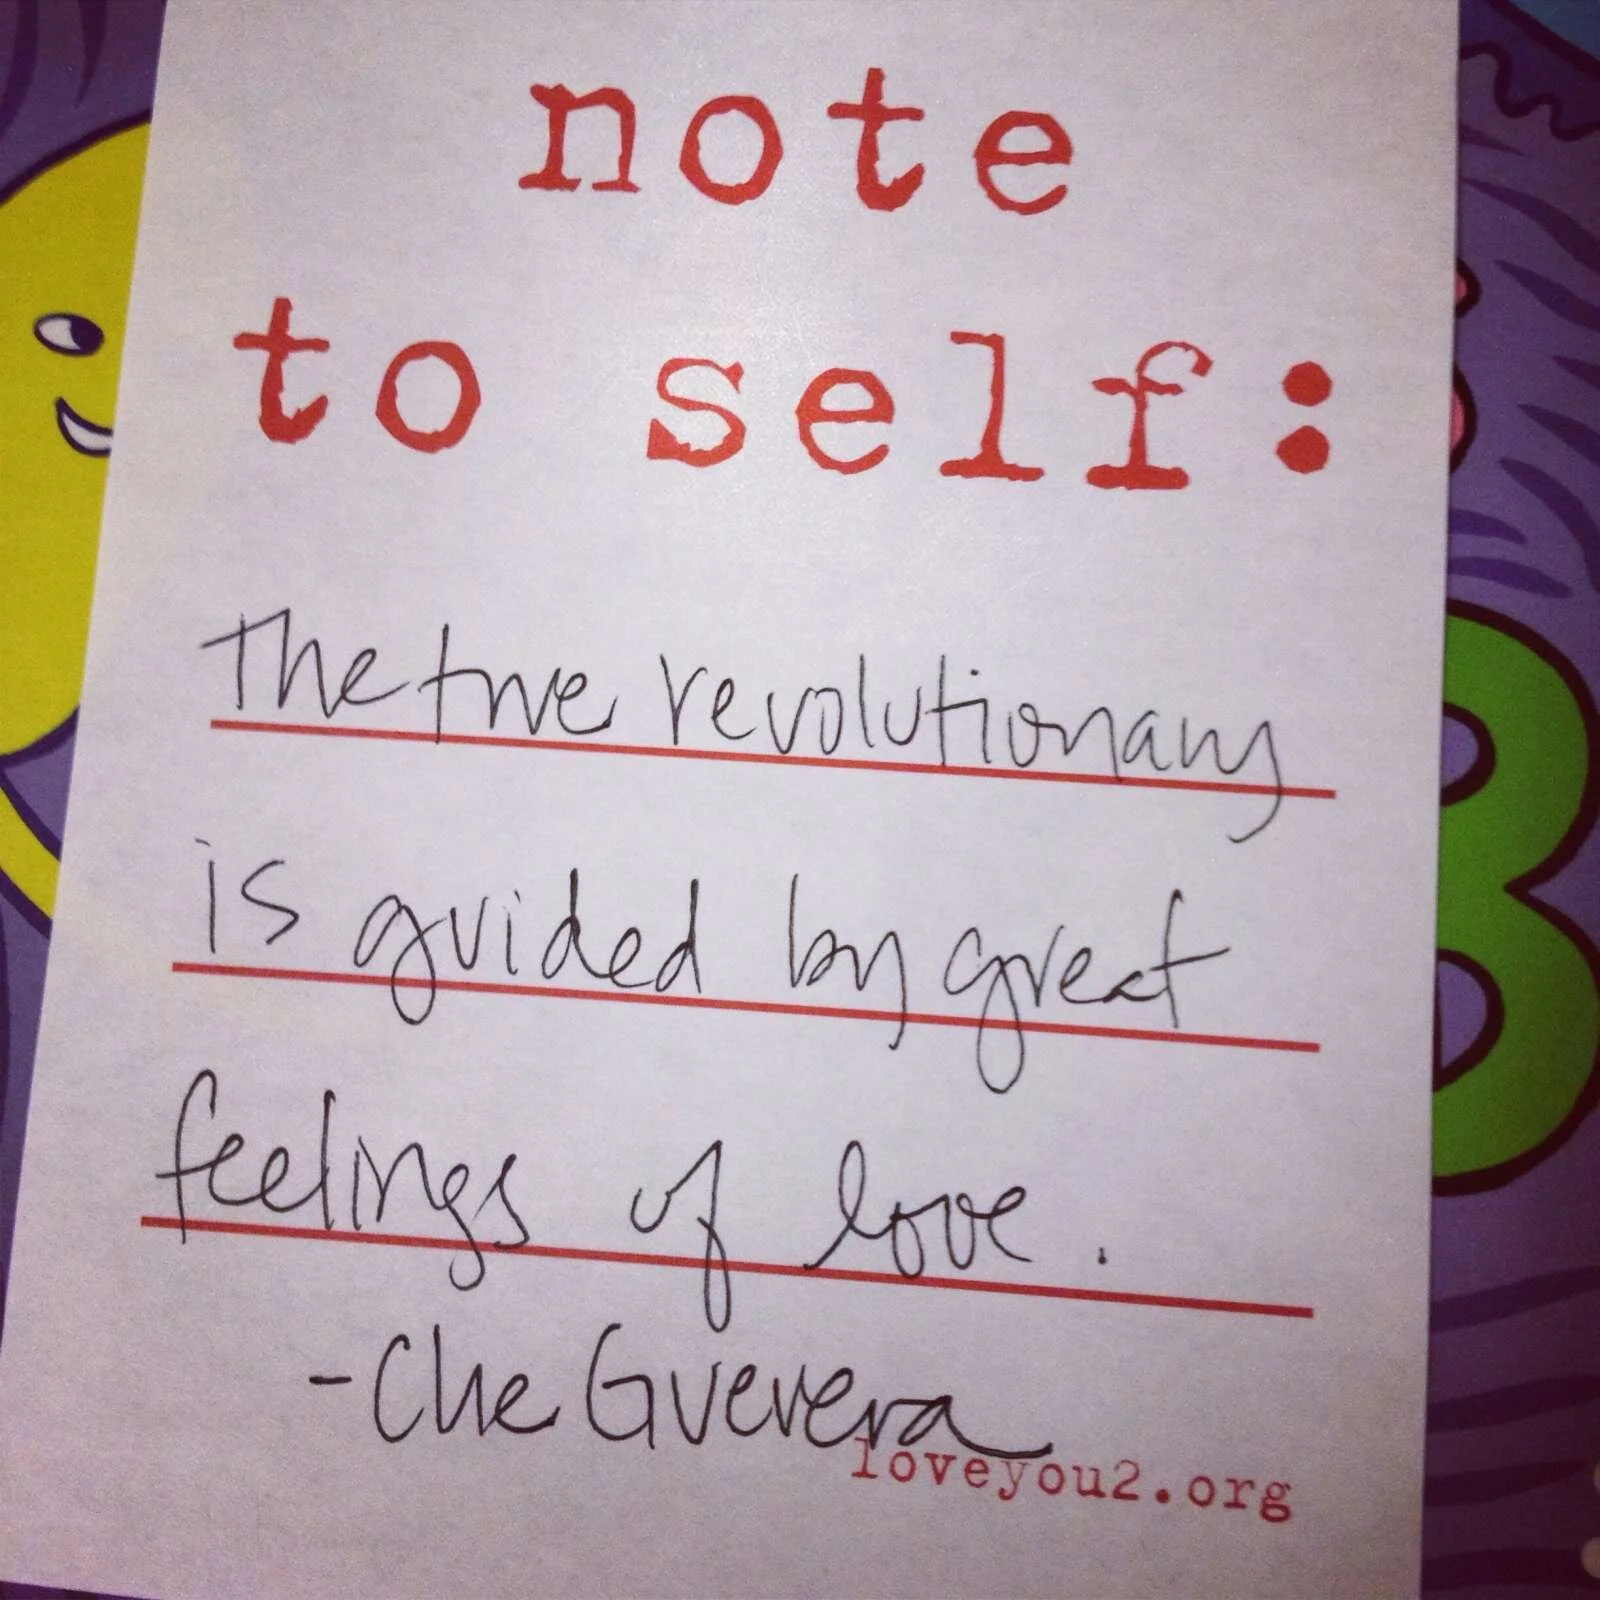 note
to self:
The true revolutionary
is guided by great
feelings of love.
-Che Guevera
loveyou2.org